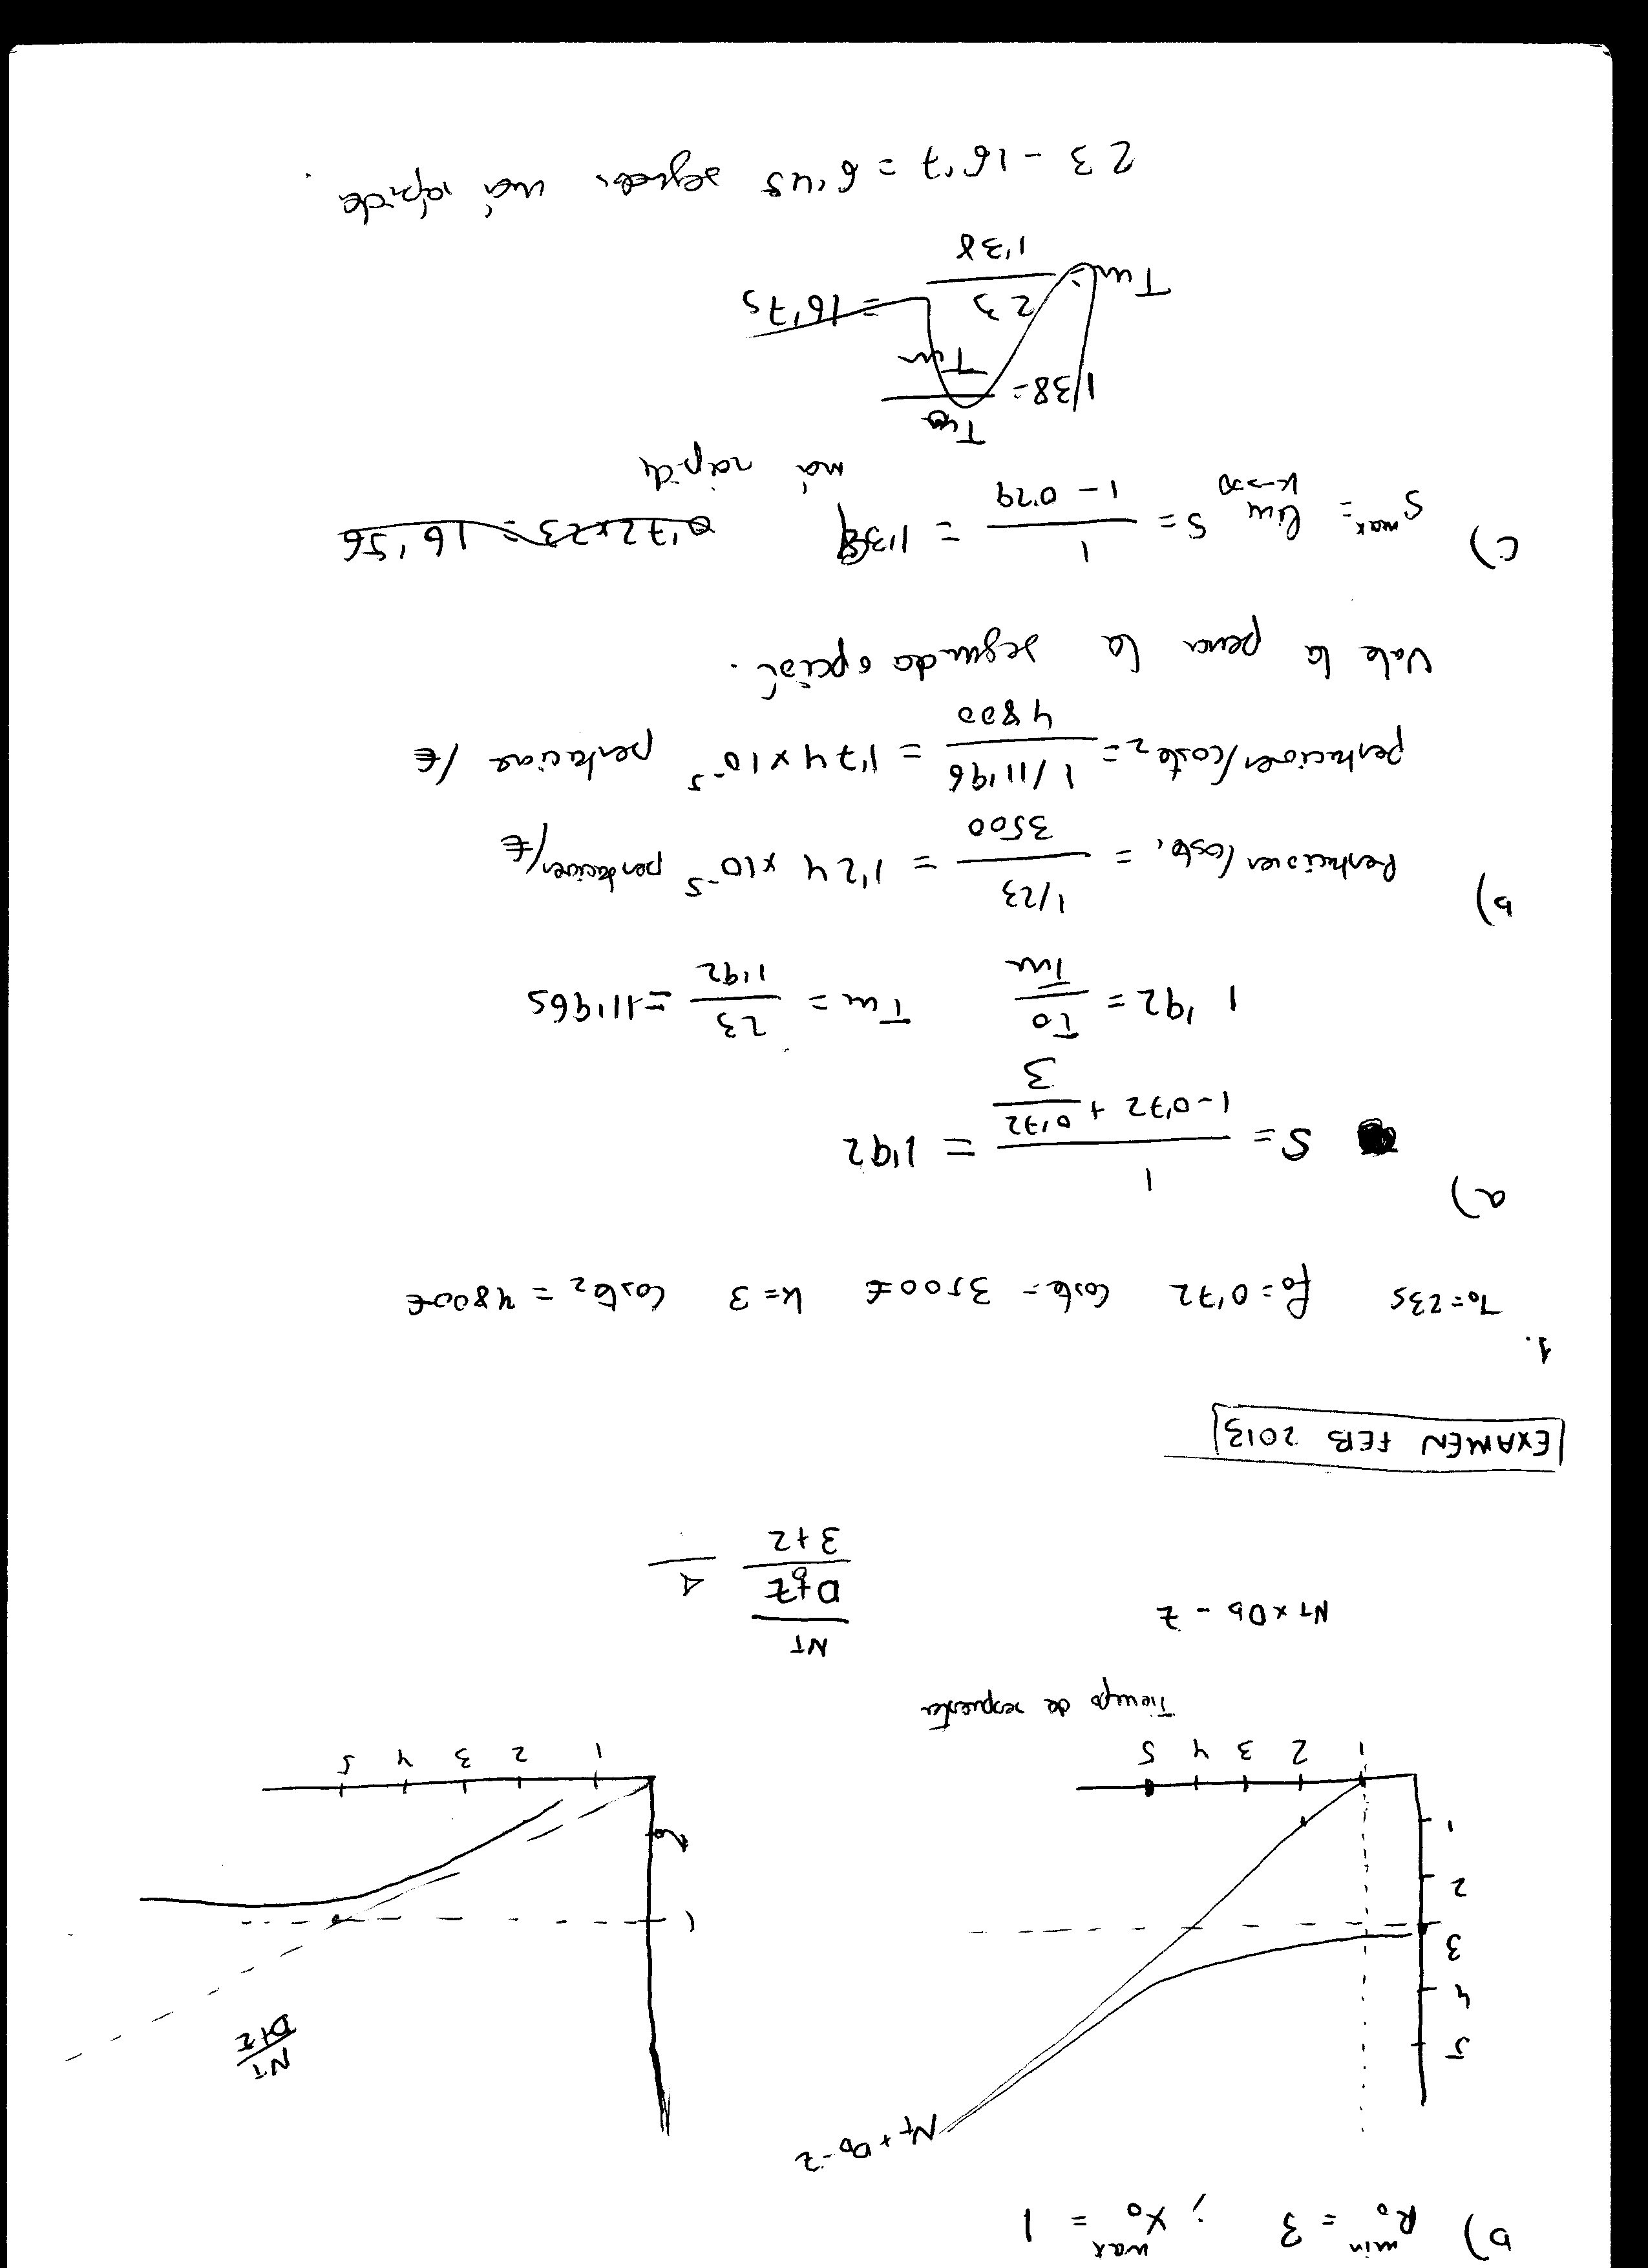 b) R₀ᵐⁱⁿ = 3 ; X₀ᵐᵃˣ = 1
NT + Db - Z
5
4
3
2
1
1 2 3 4 5
Tiempo de respuesta
NT/D+Z
1
1 2 3 4 5
NT x Db - Z
NT
Db+Z
3+2
1
EXAMEN FEB 2013
1.
T₀ = 23s f₀ = 0'72 Coste = 3500€ k = 3 Coste₂ = 4800€
a)
S = 1 / (1 - 0'72 + 0'72/3) = 1'92
1'92 = T₀/Tm Tm = 23/1'92 = 11'96s
b)
Prestaciones/Coste₁ = (1/23)/3500 = 1'24 x10⁻⁵ prestaciones/€
prestaciones/coste₂ = (1/11'96)/4800 = 1'74 x 10⁻⁵ prestacione /€
Vale la pena la segunda opción.
c)
Sᵐᵃˣ = lim k->∞ S = 1/(1 - 0'29) = 1'38 0'72x23 = 16'56
má rápide
1'38 = T₀/Tm
Tm = 23/1'38 = 16'7s
23 - 16'7 = 6'45 segundos má rápida.